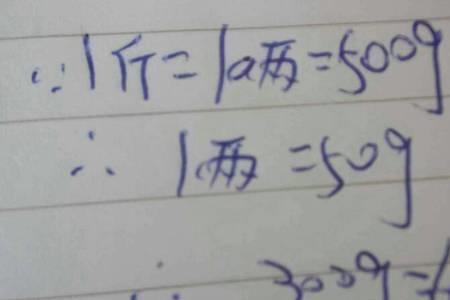 ∵1斤=10两=500g
∴ 1两=50g
∴ 300g=6